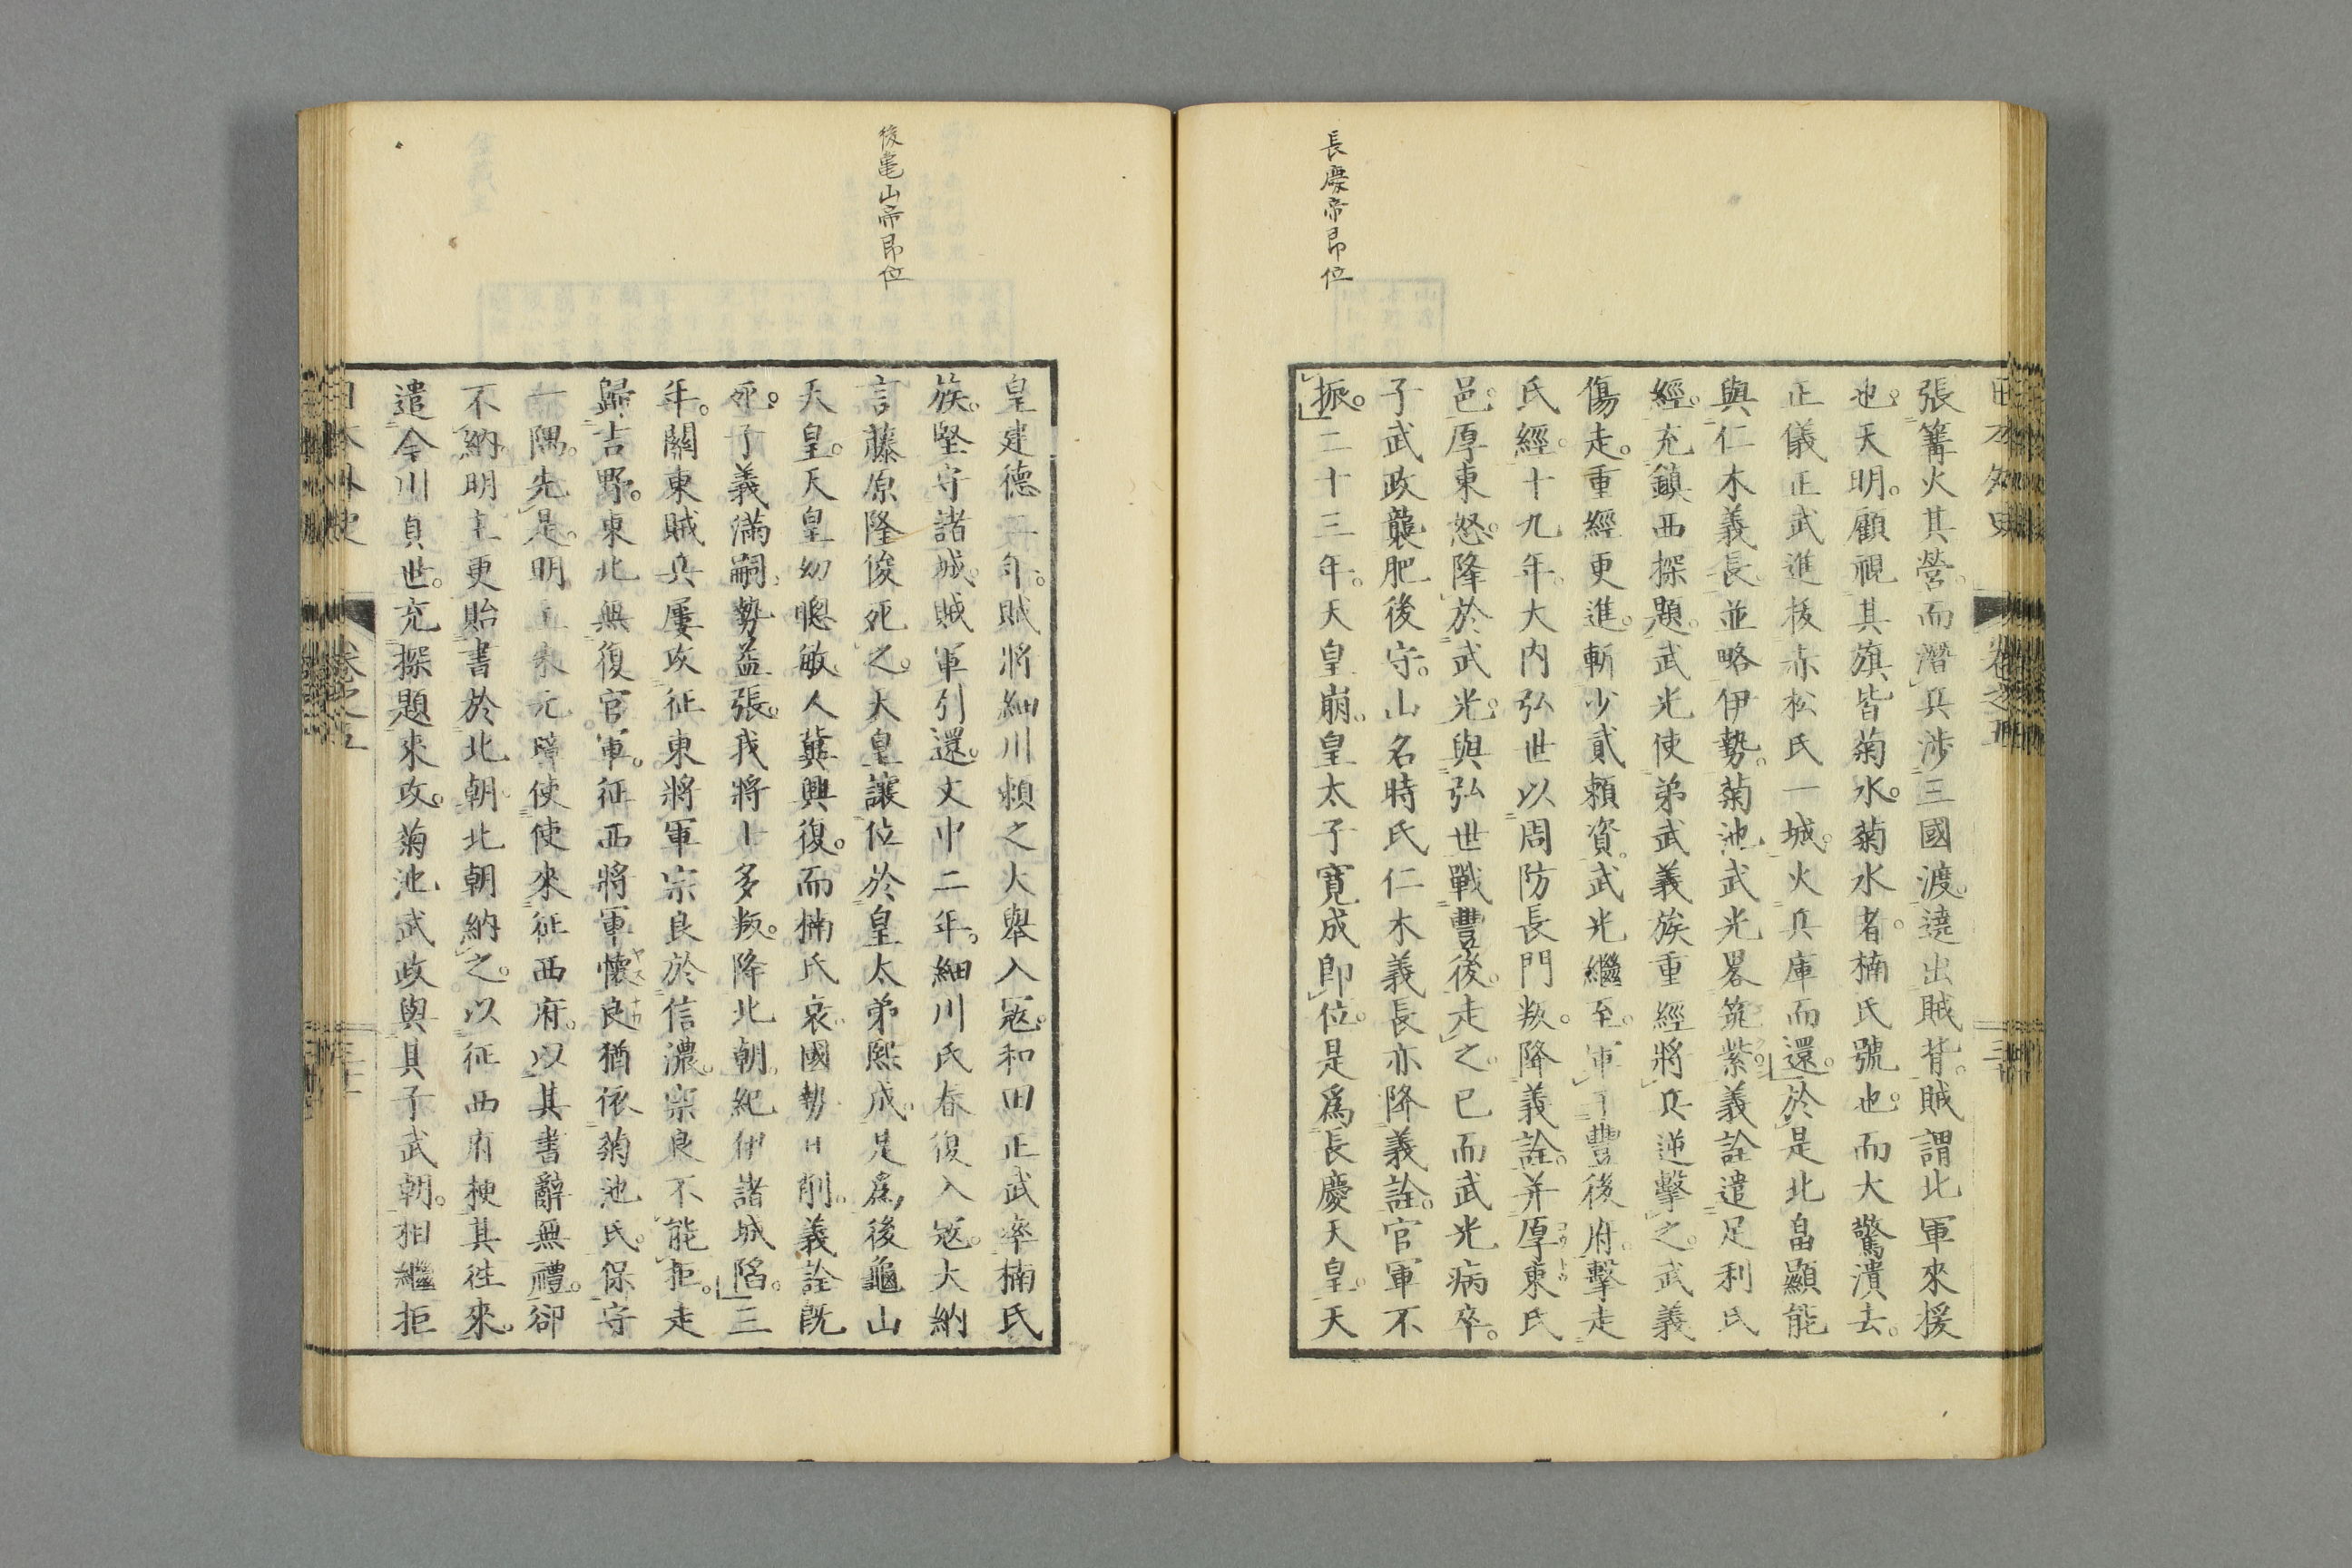 長慶帝即位
日本外史 卷之五
張篝火其營而潛兵渉三國渡遶出賊背賊謂北軍來援
也天明顧視其旗皆菊水菊水者楠氏號也而大驚潰去
正儀正武進拔赤松氏一城火兵庫而還於是北畠顯能
與仁木義長並略伊勢菊池武光畧筑紫義詮遣足利氏
經充鎮西探題武光使弟武義族重經將兵逆擊之武義
傷走重經更進斬少貳賴資武光繼至軍于豐後府擊走
氏經十九年大内弘世以周防長門叛降義詮并厚東氏
邑厚東怒降於武光與弘世戰豐後走之已而武光病卒
子武政襲肥後守山名時氏仁木義長亦降義詮官軍不
振二十三年天皇崩皇太子寛成即位是爲長慶天皇天
後亀山帝即位
皇建德二年賊將細川賴之大舉入寇和田正武率楠氏
族堅守諸城賊軍引還文中二年細川氏春復入寇大納
言藤原隆俊死之天皇讓位於皇太弟熙成是爲後龜山
天皇天皇幼聰敏人冀興復而楠氏衰國勢日削義詮既
死子義滿嗣勢益張我將士多叛降北朝紀伊諸城陷三
年關東賊兵屢攻征東將軍宗良於信濃宗良不能拒走
歸吉野東北無復官軍征西將軍懷良猶依菊池氏保守
一隅先是明主朱元璋使使來征西府以其書辭無禮卻
不納明主更貽書於北朝北朝納之以征西府梗其往來
遣今川貞世充探題來攻菊池武政與其子武朝相繼拒
日本外史 卷之五